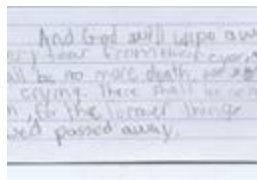 And God will wipe aw
ry tear from their eyes,
all be no more death,
crying. There shall be no
n, for the former things
ved passed away.